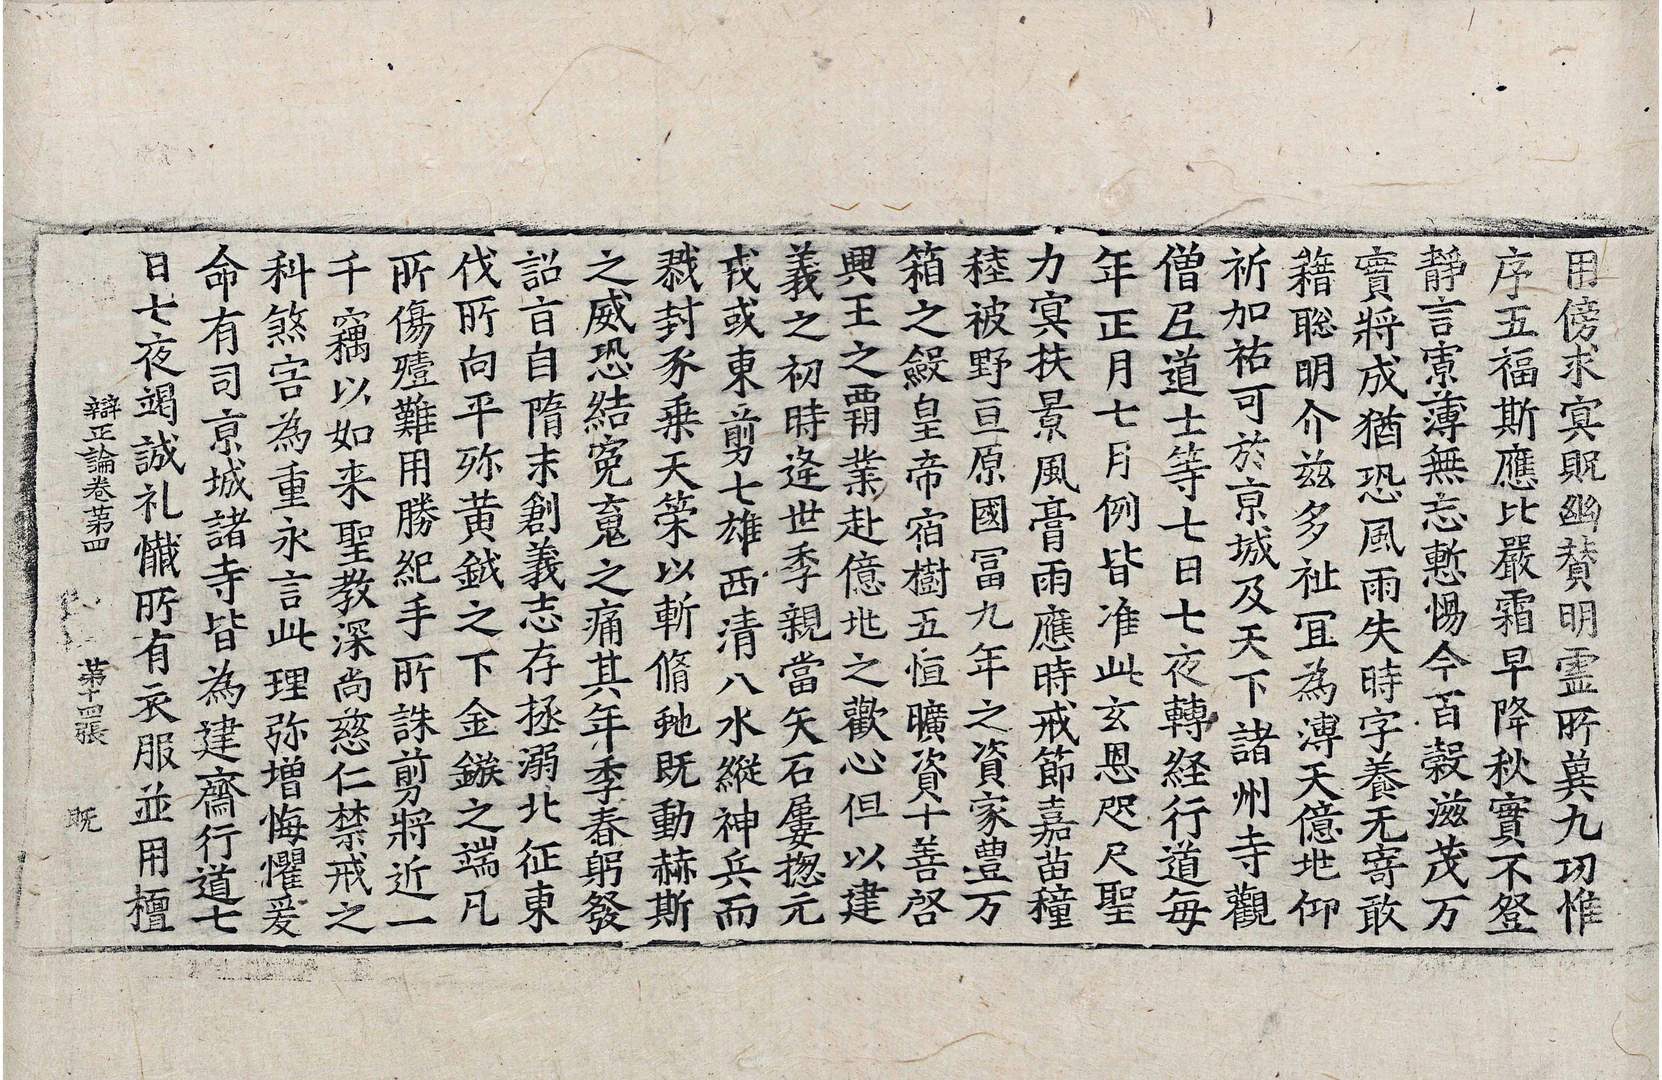 用傍求冥貺幽賛明霊所莫九功惟
序五福斯應比嚴霜早降秋實不登
靜言寮薄無忘慙惕今百穀滋茂万
實將成猶恐風雨失時字養无寄敢
籍聡明介兹多祉冝為溥天億地仰
祈加祐可於京城及天下諸州寺觀
僧尼道士等七日七夜轉経行道毎
年正月七月例皆准此玄恩咫尺聖
力冥扶景風膏雨應時戒節嘉苗穜
稑被野亘原國冨九年之資家豊万
箱之緞皇帝宿樹五恒曠資十善啓
興王之覇業赴億地之歡心但以建
義之初時逄世季親當矢石屢揔元
戎或東剪七雄西清八水縱神兵而
戮封豕乗天榮以斬脩虵既動赫斯
之威恐結寃䰟之痛其年季春躬發
詔言自隋末創義志存拯溺北征東
伐所向平殄黄鉞之下金鏃之端凡
所傷殪難用勝紀手所誅剪將近一
千竊以如来聖教深尚慈仁禁戒之
科煞害為重永言此理弥增悔懼爰
命有司京城諸寺皆為建齋行道七
日七夜竭誠礼懴所有衣服並用檀
辯正論卷第四　第十四張　既